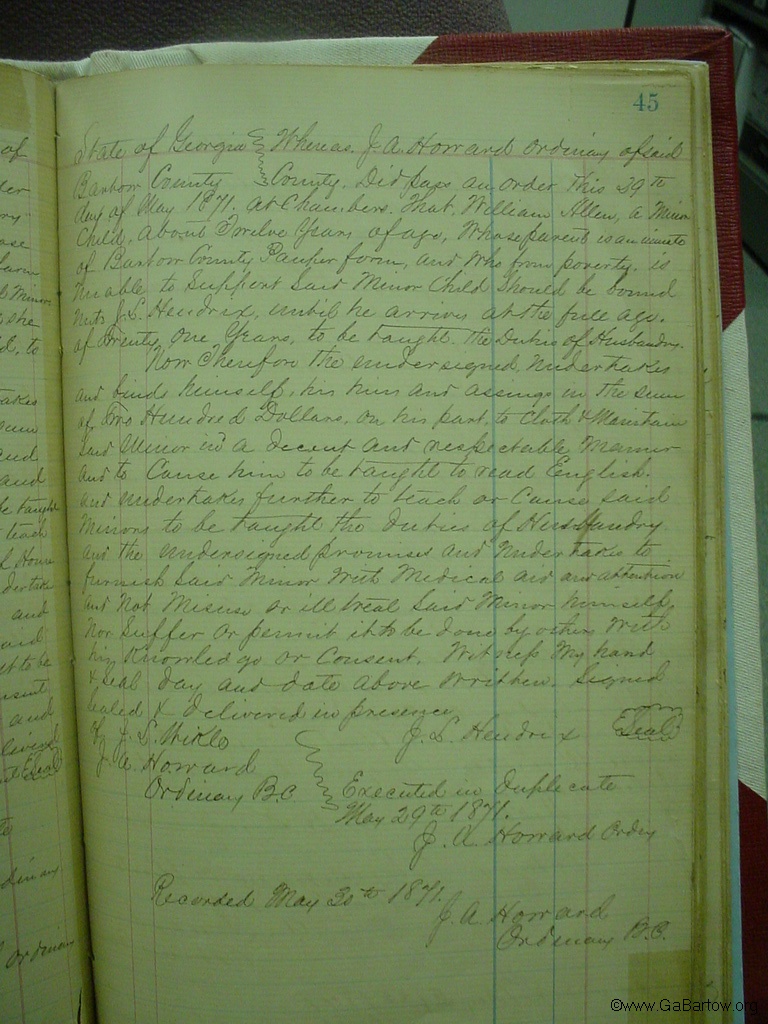 of
45
State of Georgia } Whereas. J. A. Howard Ordinary of said
Bartow County } County. Did pass an order this 29th
day of May 1871. at Chambers. That, William Allen, a Minor
Child, about Twelve Years of age, Whose parent is an inmate
of Bartow County Pauper farm, and Who from poverty. is
Unable to Support Said Minor Child Should be bound
unto J. L. Hendrix, until he arrives at the full age.
of Twenty One Years, to be taught. the Duties of Husbandry.
Now Therefore the undersigned, undertakes
and binds himself, his heirs and assings in the sum
of Two Hundred Dollars, on his part, to Cloth & Maintain
Said Minor in a decent and respectable manner
and to Cause him to be taught to read English.
and undertakes further to teach or Cause said
Minors to be taught the duties of Husbandry.
and the undersigned promises and undertakes to
furnish Said Minor With Medical aid and attention
and Not Misuse or ill treat Said Minor himself,
Nor Suffer or permit it to be done by others With
his Knowledge or Consent. Witness My hand
& seal day and date above written. Signed
Sealed & delivered in presence
of J. L. J. L. Hendrix Seal
J. A. Howard
Ordinary B.C. } Executed in Duplicate
May 29th 1871.
J. A. Howard Ordry
Recorded May 30th 1871.
J. A. Howard
Ordinary B.C.
©www.GaBartow.org